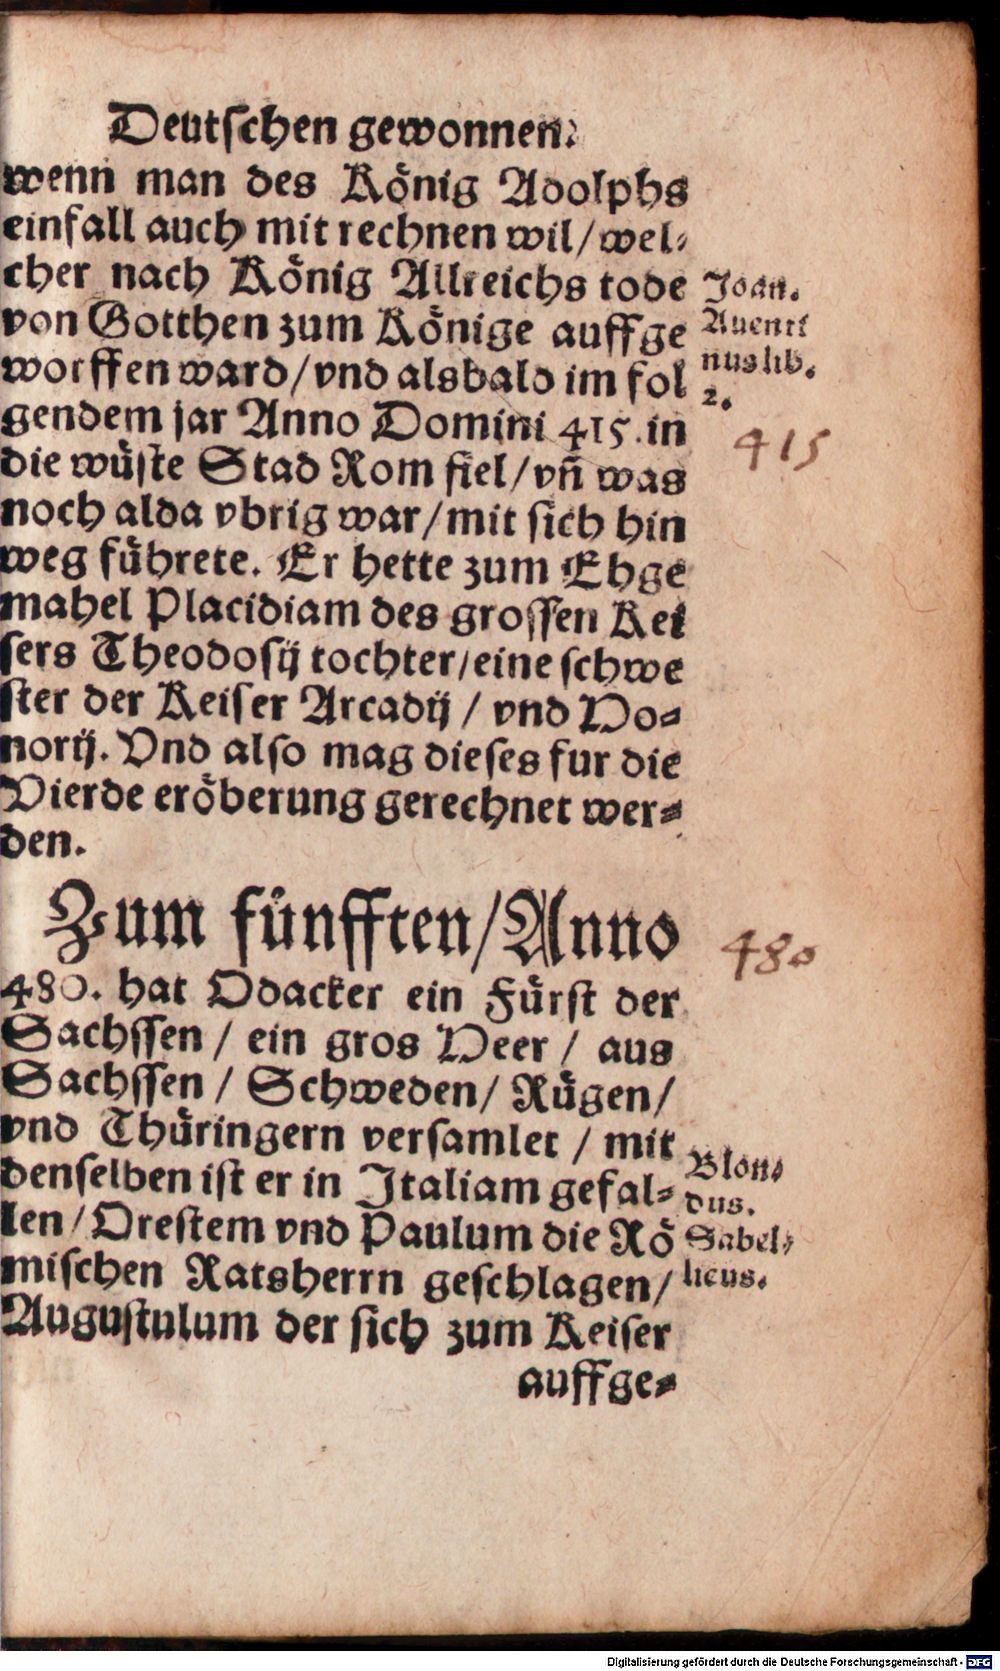 Deutschen gewonnen.
wenn man des König Adolphs
einfall auch mit rechnen wil/wel-
cher nach König Allreichs tode
von Gotthen zum Könige auffge
worffen ward/vnd alsbald im fol
gendem jar Anno Domini 415. in
die wüste Stad Rom fiel/vñ was
noch alda vbrig war/mit sich hin
weg führete. Er hette zum Ehge
mahel Placidiam des grossen Kei
sers Theodosij tochter/eine schwe
ster der Keiser Arcadij / vnd Ho-
norij. Vnd also mag dieses fur die
Vierde eröberung gerechnet wer-
den.
Joan.
Auenti
nus lib.
2.
415
Zum fünfften/Anno
480. hat Odacker ein Fürst der
Sachssen / ein gros Heer / aus
Sachssen / Schweden/ Rügen/
vnd Thüringern versamlet / mit
denselben ist er in Italiam gefal-
len/Orestem vnd Paulum die Rö
mischen Ratsherrn geschlagen/
Augustulum der sich zum Keiser
auffge-
480
Blon-
dus.
Sabel-
licus.
Digitalisierung gefördert durch die Deutsche Forschungsgemeinschaft - DFG